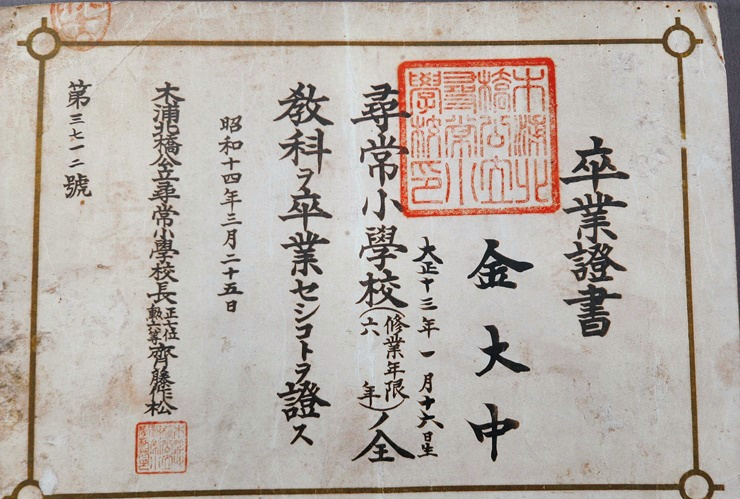 卒業證書
木浦北
橋公立
尋常小
學校印
金大中
大正十三年一月十六日生
尋常小學校(修業年限六年)ノ全
教科ヲ卒業セシコトヲ證ス
昭和十四年三月二十五日
木浦北橋公立尋常小學校長正七位勲六等齊藤作松
第三七一二號